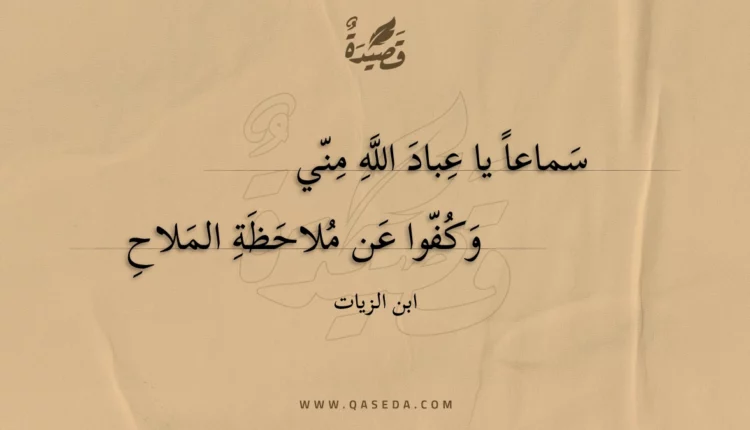 قَصِيدَةٌ
سَماعاً يا عِبادَ اللَّهِ مِنّي
وَكُفّوا عَن مُلاحَظَةِ المَلاحِ
ابن الزيات
WWW.QASEDA.COM